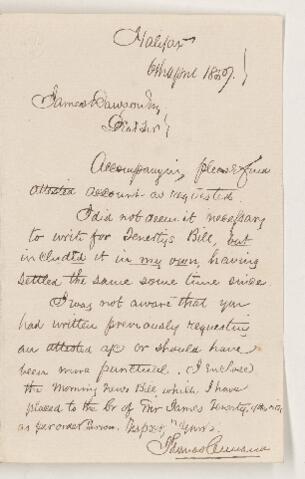 Halifax
6th April 18
James Dawson Esq
Dear Sir
Accompanying please find
attested account as requested.
I did not deem it necessary
to write for Bill, but
included it in my own, having
settled the same some time since.
I was not aware that you
had written previously requesting
an attested a/c or should have
been more punctual. I enclose
the Morning News Bill, which I have
placed to the Cr of Mr James
as per order
Thomas